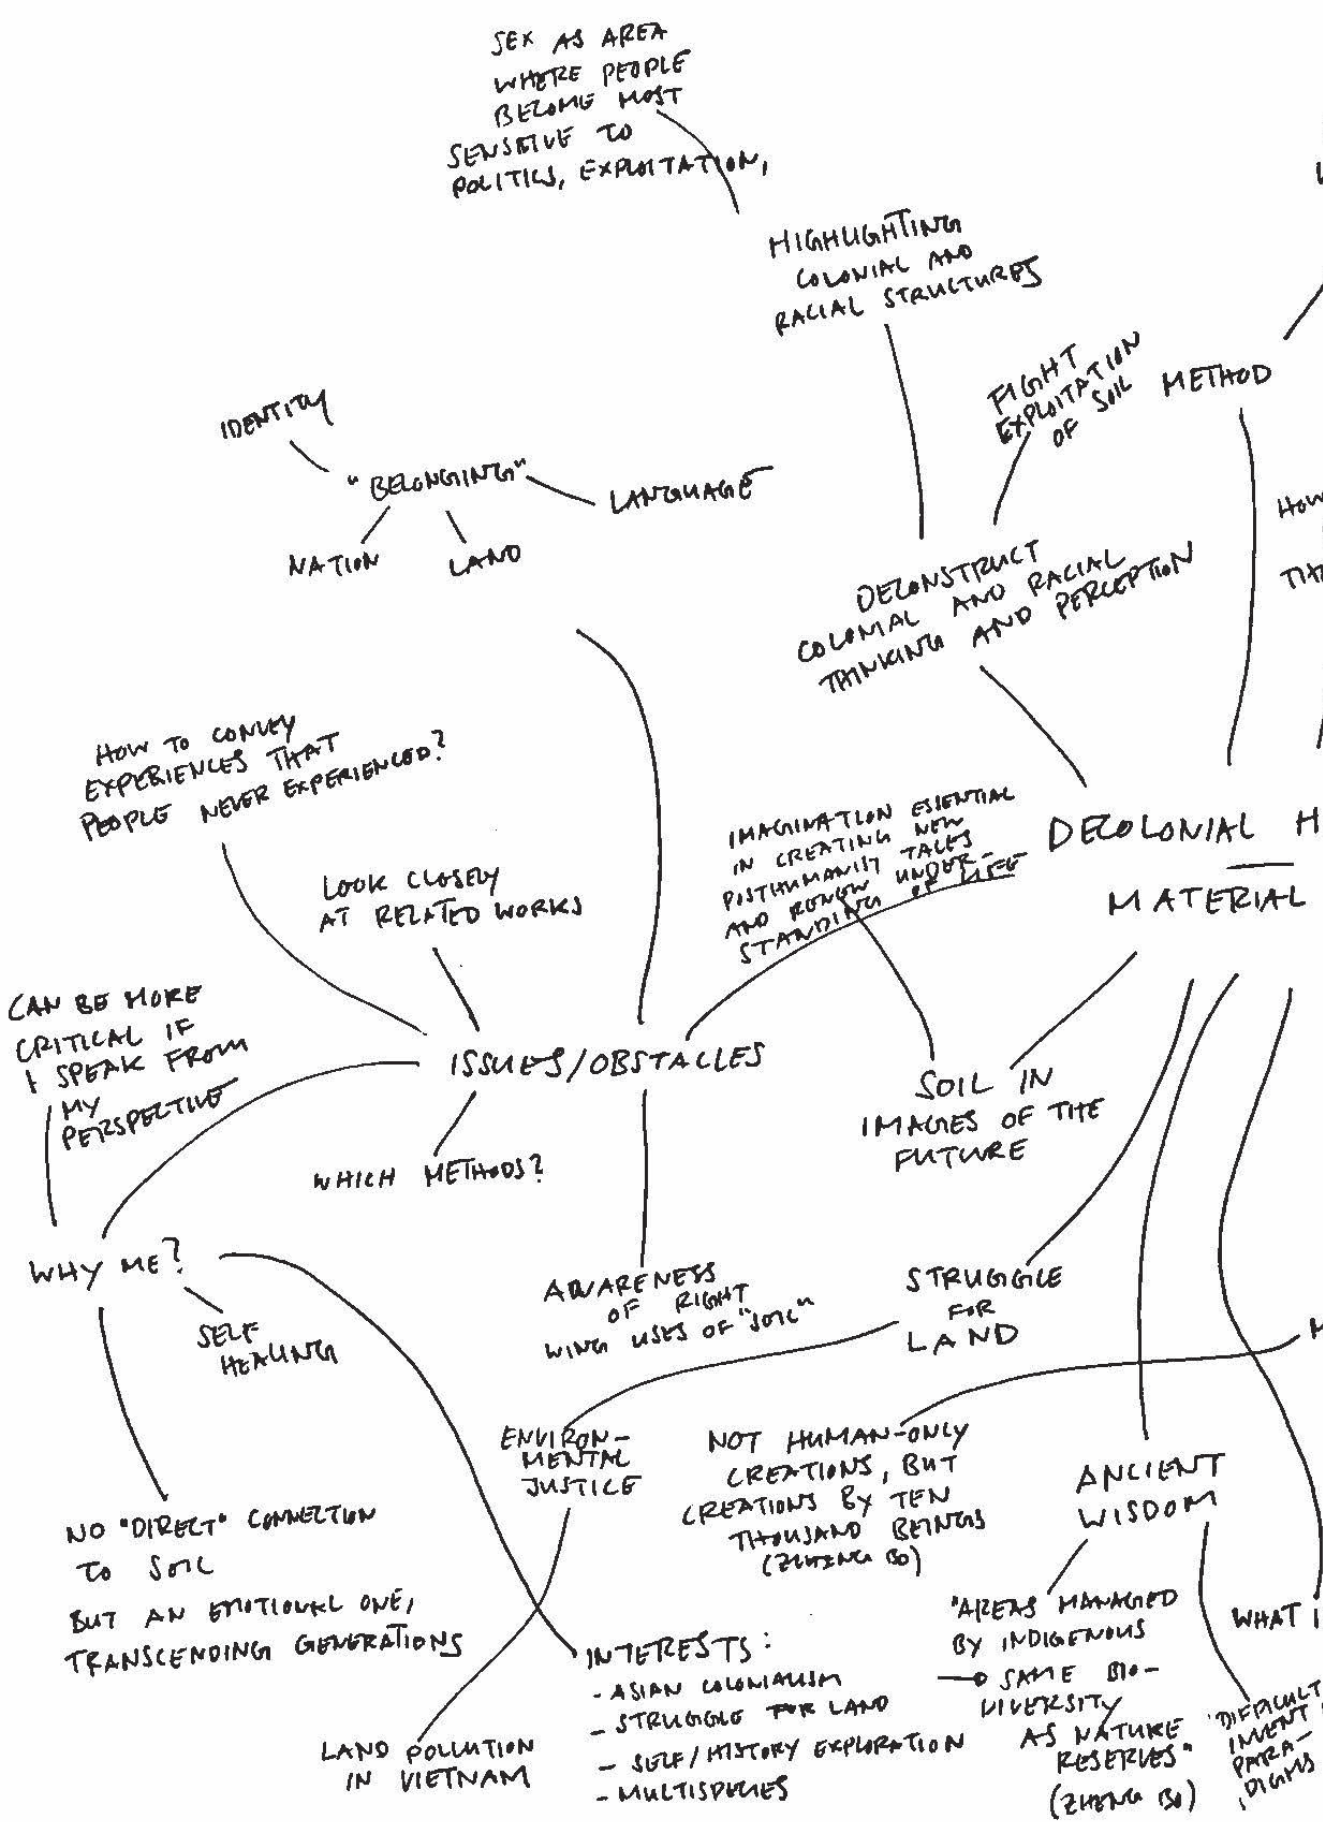 SEX AS AREA
WHERE PEOPLE
BECOME MOST
SENSITIVE TO
POLITICS, EXPLOITATION,
HIGHLIGHTING
COLONIAL AND
RACIAL STRUCTURES
FIGHT
EXPLOITATION
OF SOIL
METHOD
IDENTITY
"BELONGING"
LANGUAGE
NATION
LAND
HOW
DECONSTRUCT
COLONIAL AND RACIAL
THINKING AND PERCEPTION
HOW TO CONVEY
EXPERIENCES THAT
PEOPLE NEVER EXPERIENCED?
LOOK CLOSELY
AT RELATED WORKS
IMAGINATION ESSENTIAL
IN CREATING NEW
POSTHUMANIST TALES
AND RENEW UNDER-
STANDING OF LIFE
DECOLONIAL H
MATERIAL
CAN BE MORE
CRITICAL IF
I SPEAK FROM
MY
PERSPECTIVE
ISSUES/OBSTACLES
SOIL IN
IMAGES OF THE
FUTURE
WHICH METHODS?
WHY ME?
SELF
HEALING
AWARENESS
OF RIGHT
WING USES OF "SOIL"
STRUGGLE
FOR
LAND
ENVIRON-
MENTAL
JUSTICE
NOT HUMAN-ONLY
CREATIONS, BUT
CREATIONS BY TEN
THOUSAND BEINGS
(ZHENG BO)
ANCIENT
WISDOM
NO "DIRECT" CONNECTION
TO SOIL
BUT AN EMOTIONAL ONE,
TRANSCENDING GENERATIONS
INTERESTS:
- ASIAN COLONIALISM
- STRUGGLE FOR LAND
- SELF/HISTORY EXPLORATION
- MULTISPECIES
LAND POLLUTION
IN VIETNAM
"AREAS MANAGED
BY INDIGENOUS
SAME BIO-
DIVERSITY
AS NATURE
RESERVES"
(ZHENG BO)
WHAT I
"DIFFICULT
INVENT
PARA-
DIGMS